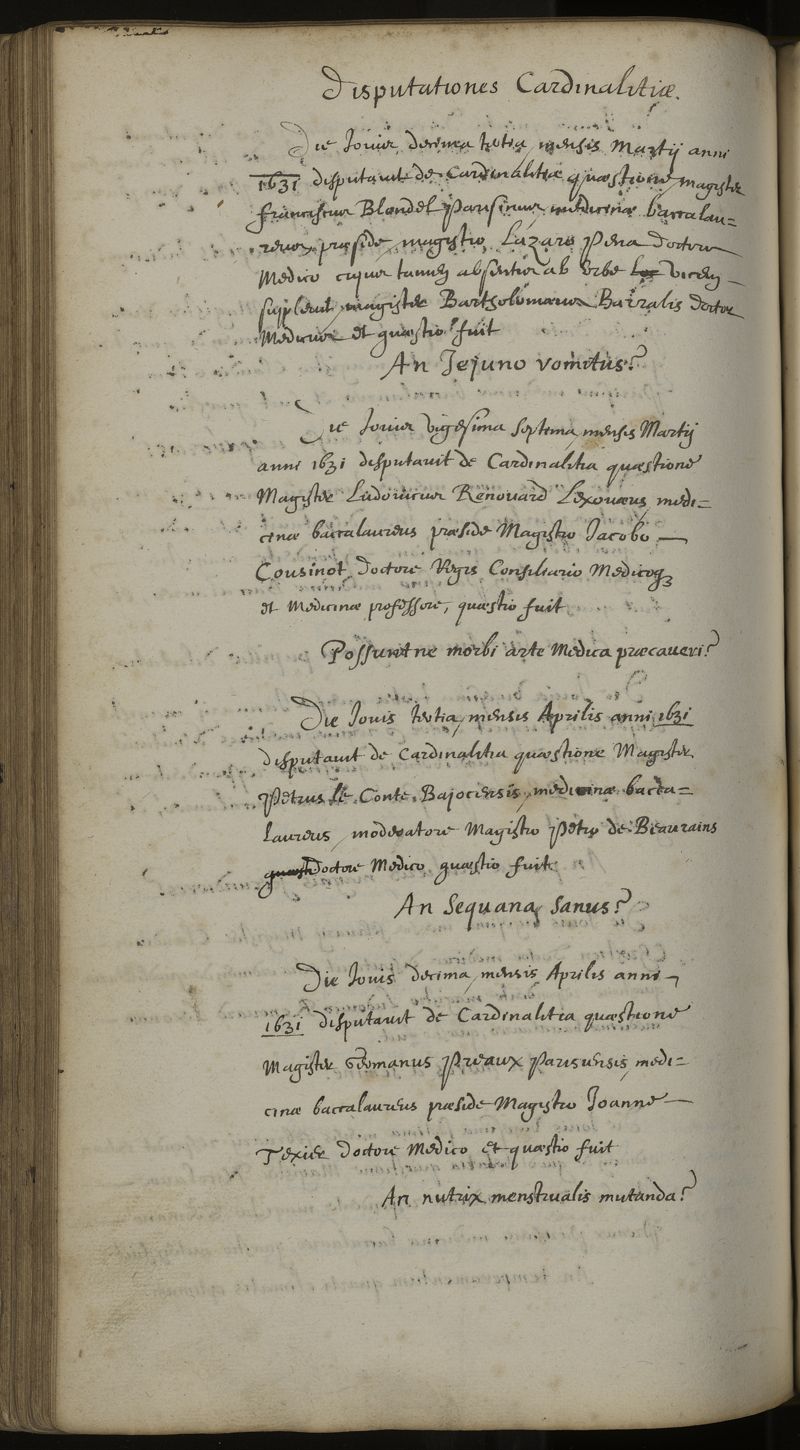 Disputationes Cardinalitiæ.
Die Jovis decima tertia mensis Martij anni
1631 disputavit de Cardinalitia quæstione magister
franciscus Blondel Parisinus medicinæ baccalau=
reus, præside magistro Lazaro Pena doctore
Medico cujus tamen absentis ab Urbe vicem
supplevit magister Bartholomæus Barralis doctor
Medicus et quæstio fuit
An Jejuno vomitus?
Die Jovis vigesima septema mensis Martij
anni 1631 disputavit de Cardinalitia quæstione
Magister Ludovicus Renouard Lexovæus medi=
cinæ baccalaureus præside Magistro Jacobo
Cousinot Doctore Regis Consiliario Medicoq3
et Medicinæ professore, quæstio fuit
Possuntne morbi arte Medica præcaveri?
Die Jovis tertia mensis Aprilis anni 1631
disputavit de Cardinalitia quæstione Magister
Petrus le Conte Bajocensis, medicinæ bacca=
laureus moderatore Magistro Petro de Beaurains
Doctore Medico quæstio fuit
An Sequana sanus?
Die Jovis decima mensis Aprilis anni
1631 disputavit de Cardinalitia quæstione
Magister Germanus Preaux Parisiensis medi=
cinæ baccalaureus præside Magistro Joanne
Texier doctore Medico et quæstio fuit
An nutrix menstrualis mutanda?